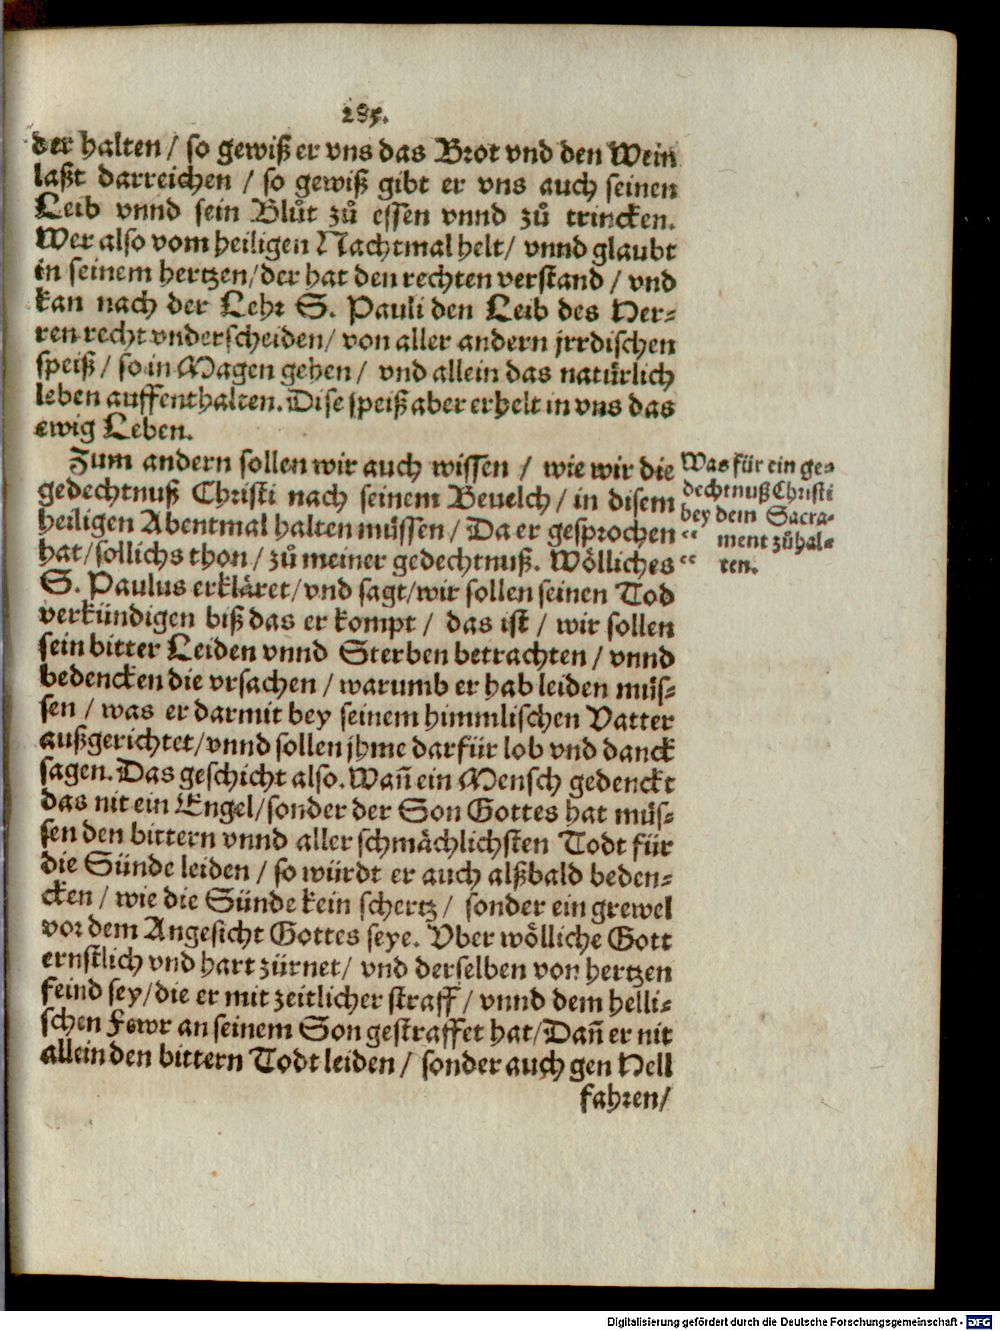 285.
der halten / so gewiß er vns das Brot vnd den Wein
laßt darreichen / so gewiß gibt er vns auch seinen
Leib vnnd sein Blůt zů essen vnnd zů trincken.
Wer also vom heiligen Nachtmal helt / vnnd glaubt
in seinem hertzen / der hat den rechten verstand / vnd
kan nach der Lehr S. Pauli den Leib des Her⸗
ren recht vnderscheiden / von aller andern jrrdischen
speiß / so in Magen gehen / vnd allein das natürlich
leben auffenthalten. Dise speiß aber erhelt in vns das
ewig Leben.
Zum andern sollen wir auch wissen / wie wir die
gedechtnuß Christi nach seinem Beuelch / in disem
heiligen Abentmal halten müssen / Da er gesprochen “
hat / sollichs thon / zů meiner gedechtnuß. Wölliches “
S. Paulus erkläret / vnd sagt / wir sollen seinen Tod
verkündigen biß das er kompt / das ist / wir sollen
sein bitter Leiden vnnd Sterben betrachten / vnnd
bedencken die vrsachen / warumb er hab leiden müs⸗
sen / was er darmit bey seinem himmlischen Vatter
außgerichtet / vnnd sollen jhme darfür lob vnd danck
sagen. Das geschicht also. Wañ ein Mensch gedenckt
das nit ein Engel / sonder der Son Gottes hat müs⸗
sen den bittern vnnd aller schmächlichsten Todt für
die Sünde leiden / so würdt er auch alßbald beden⸗
cken / wie die Sünde kein schertz / sonder ein grewel
vor dem Angesicht Gottes seye. Vber wölliche Gott
ernstlich vnd hart zürnet / vnd derselben von hertzen
feind sey / die er mit zeitlicher straff / vnnd dem helli⸗
schen Fewr an seinem Son gestraffet hat / Dañ er nit
allein den bittern Todt leiden / sonder auch gen Hell
fahren /
Was für ein ge⸗
dechtnuß Christi
bey dem Sacra⸗
ment zů hal⸗
ten.
Digitalisierung gefördert durch die Deutsche Forschungsgemeinschaft - DFG